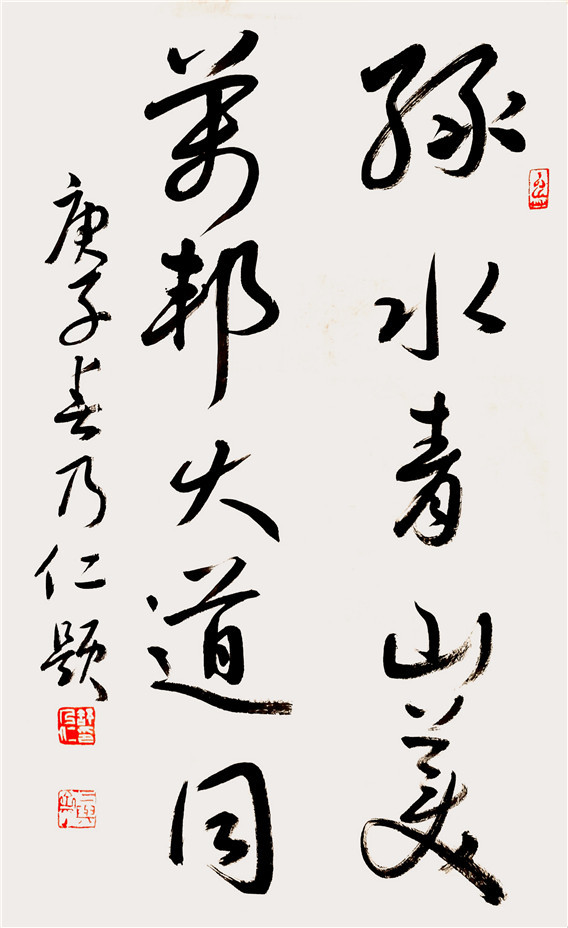 綠水青山美
萬邦大道同
庚子春乃仁題